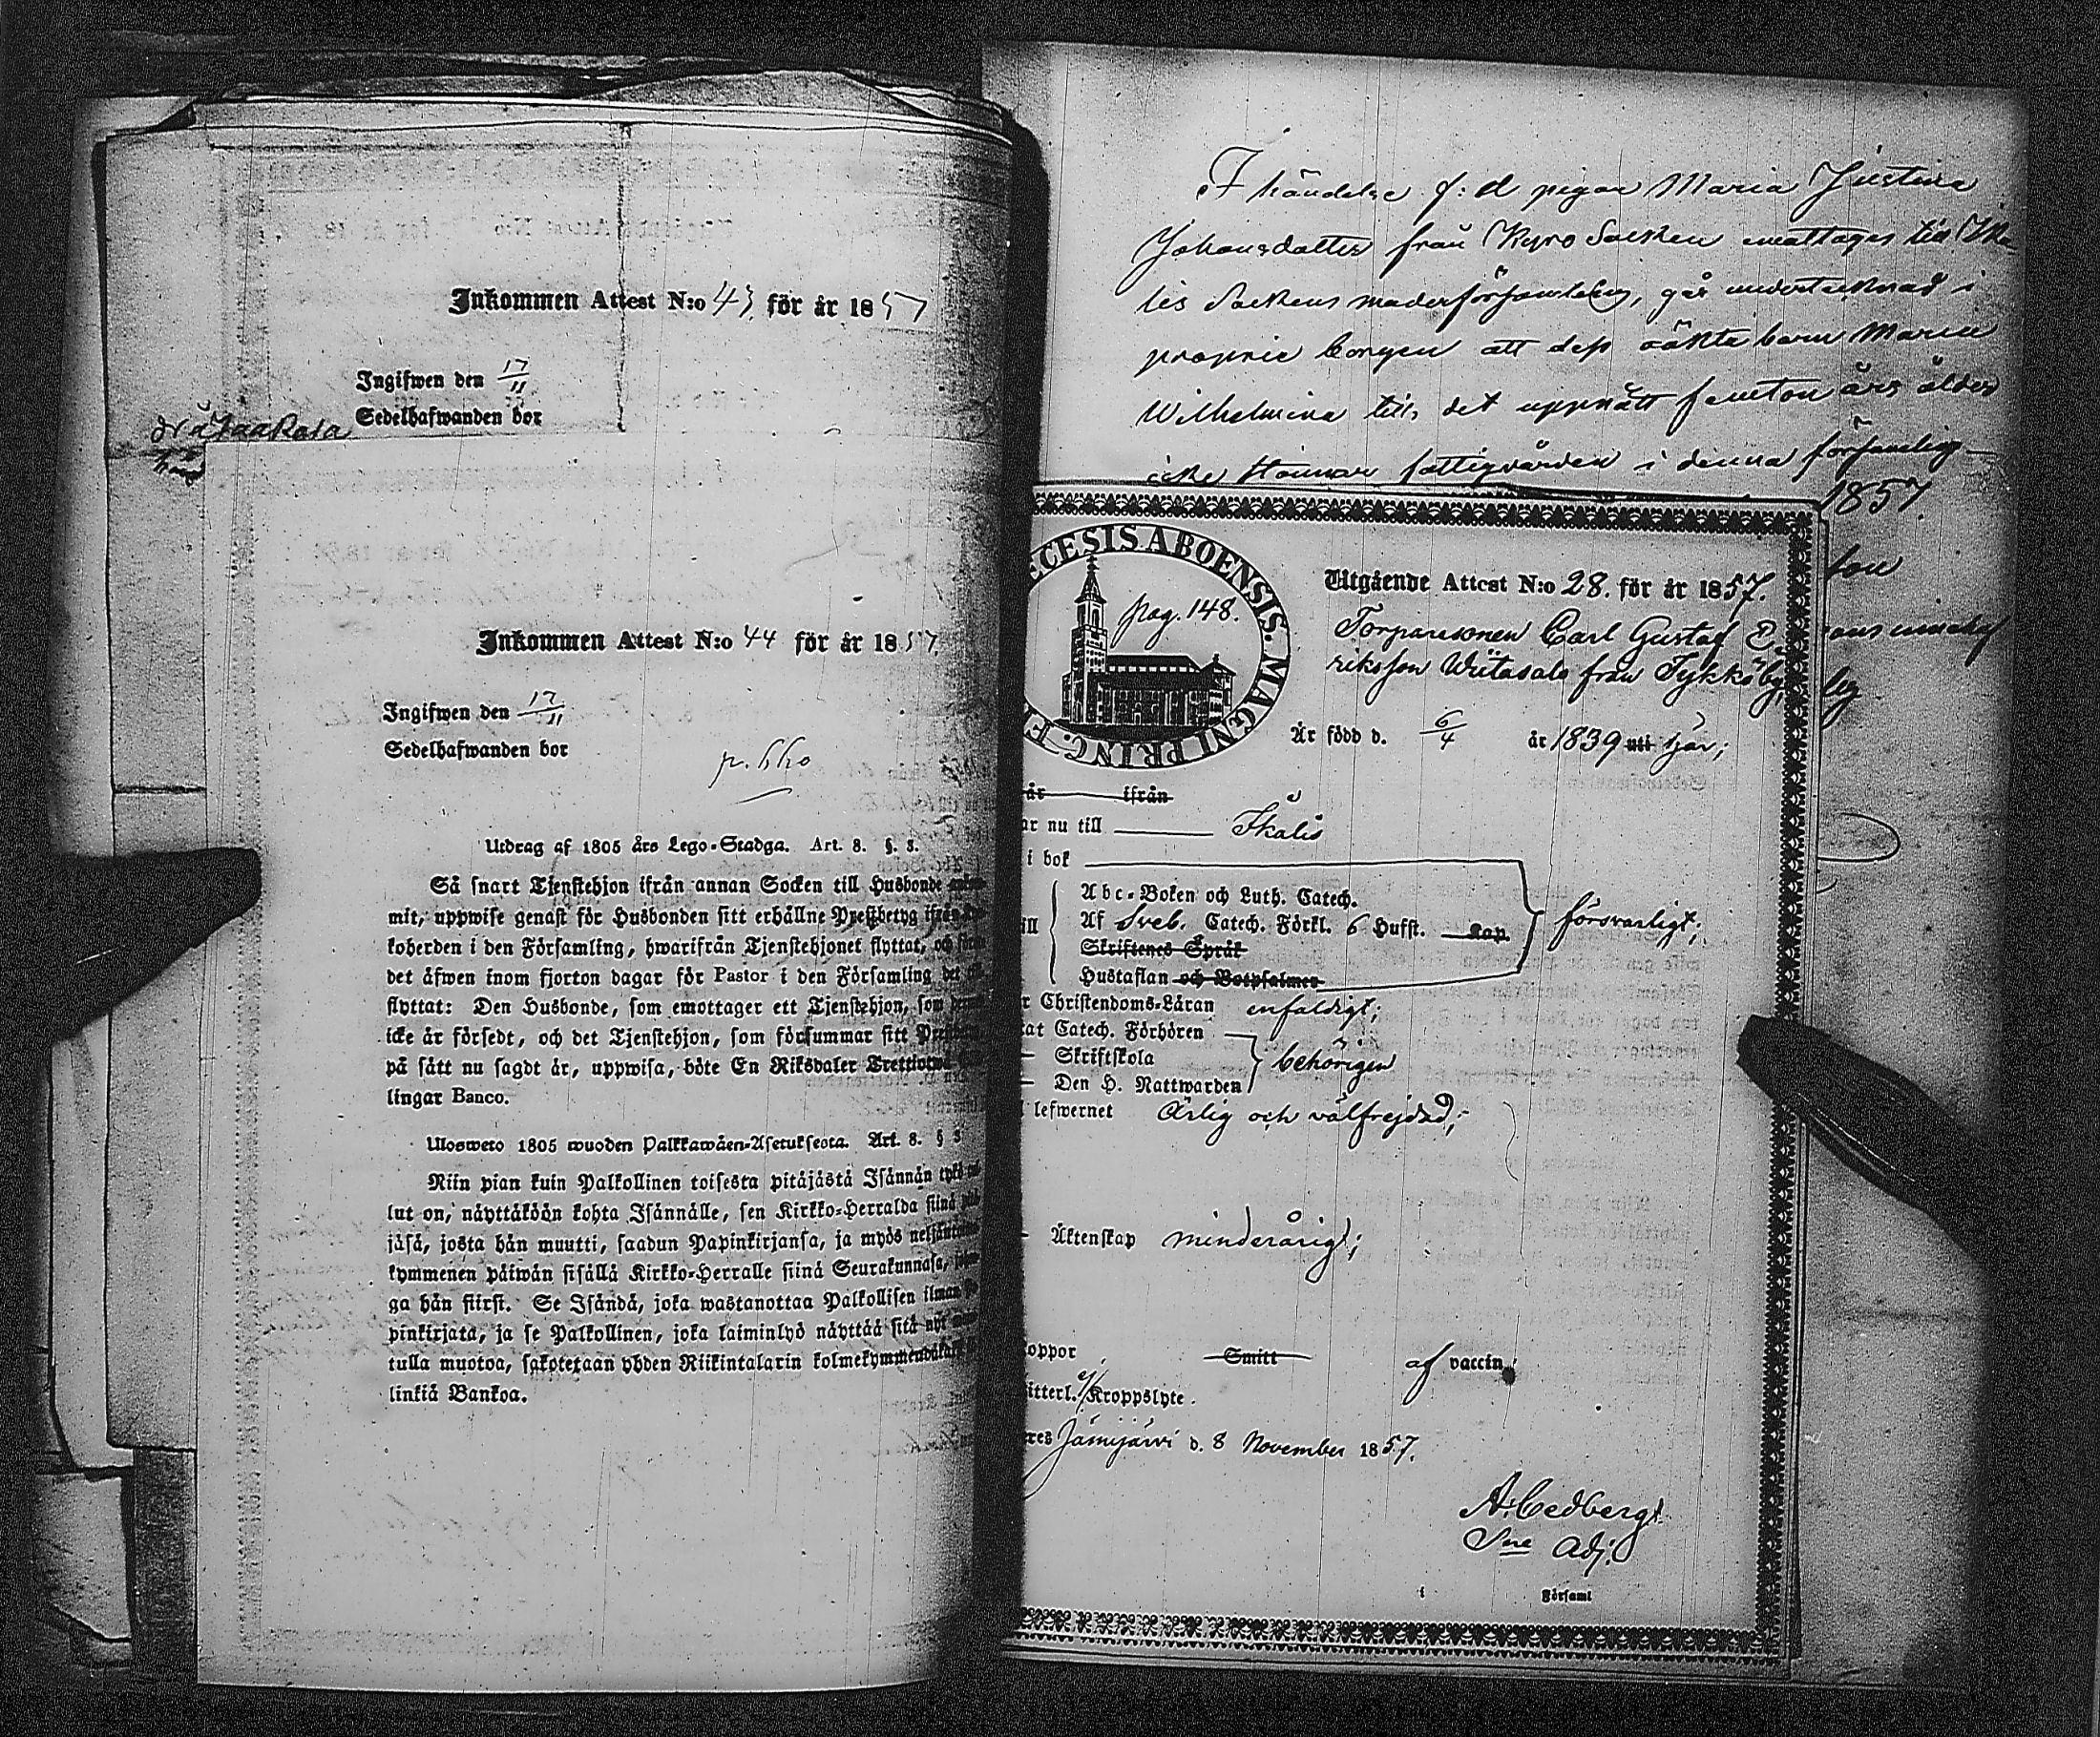 Inkommen Attest N:o 43 för år 1857
Ingifwen den 17/11
Sedelhafwanden bor
Inkommen Attest N:o 44 för år 1857.
Ingifwen den 17/11
Sedelhafwanden bor
Utdrag af 1805 års Lego-Stadga. Art. 8. §. 3.
Så snart Tjenstehjon ifrån annan Socken till Husbonde
mit, uppwise genast för Husbonden sitt erhållne Prestbetyg ifrån
koherden i den Församling, hwarifrån Tjenstehjonet flyttat, och
det äfwen inom fjorton dagar för Pastor i den Församling det
flyttat: Den Husbonde, som emottager ett Tjenstehjon, som
icke är försedt, och det Tjenstehjon, som försummar sitt
på sätt nu sagdt är, uppwisa, böte En Riksdaler
lingar Banco.
Ulosweto 1805 wuoden Palkkawäen-Asetuksesta. Art. 8. § 3
Niin pian kuin Palkollinen toisesta pitäjästä Isännän tykö
lut on, näyttäköön kohta Isännälle, sen Kirkko-Herralda siinä
jäsä, josta hän muutti, saadun Papinkirjansa, ja myös
kymmenen päiwän sisällä Kirkko-Herralle siinä Seurakunnasa,
ga hän siirst. Se Isändä, joka wastanottaa Palkollisen ilman
pinkirjata, ja se Palkollinen, joka laiminlyö näyttää sitä nyt
tulla muotoa, sakotetaan yhden Riikintalarin
linkiä Bankoa.
I händelse f: d pigan Maria Justina
Johansdotter från Kyro Socken emottages till Ika-
lis Sockens moderförsamling, går undertecknad i
proprie borgen att dess oäkta barn Maria
Wilhelmina till det uppnått femton års ålder
icke kommer fattigvården i denna församling
1857.
ECESIS ABOENSIS. MAGNI PRINC.
pag. 148.
Utgående Attest N:o 28. för år 1857.
Torparesonen Carl Gustaf E-
riksson Wiitasalo från Tykköby,
Är född d. 6/4 år 1839 uti
år ifrån
ar nu till Ikalis
i bok
Abc-Boken och Luth. Catech.
Af Sveb. Catech. Förkl. 6 Hufst. Kap.
försvarligt;
Skriftenes Språk
Hustaflan och Botpsalmer
Christendoms-Läran enfaldigt;
at Catech. Förhören
Skriftskola
behörigen
Den H. Nattwarden
lefwernet Ärlig och välfrejdad;
Äktenskap minderårig;
oppor Smitt af vaccin;
itterl. Kroppslyte.
res Jämijärvi d. 8 November 1857.
A. Cedberg
Sne Adj.
i Församl